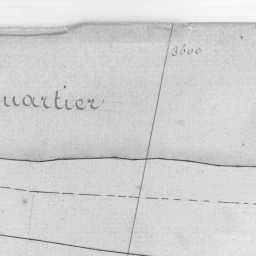 3600
uartier